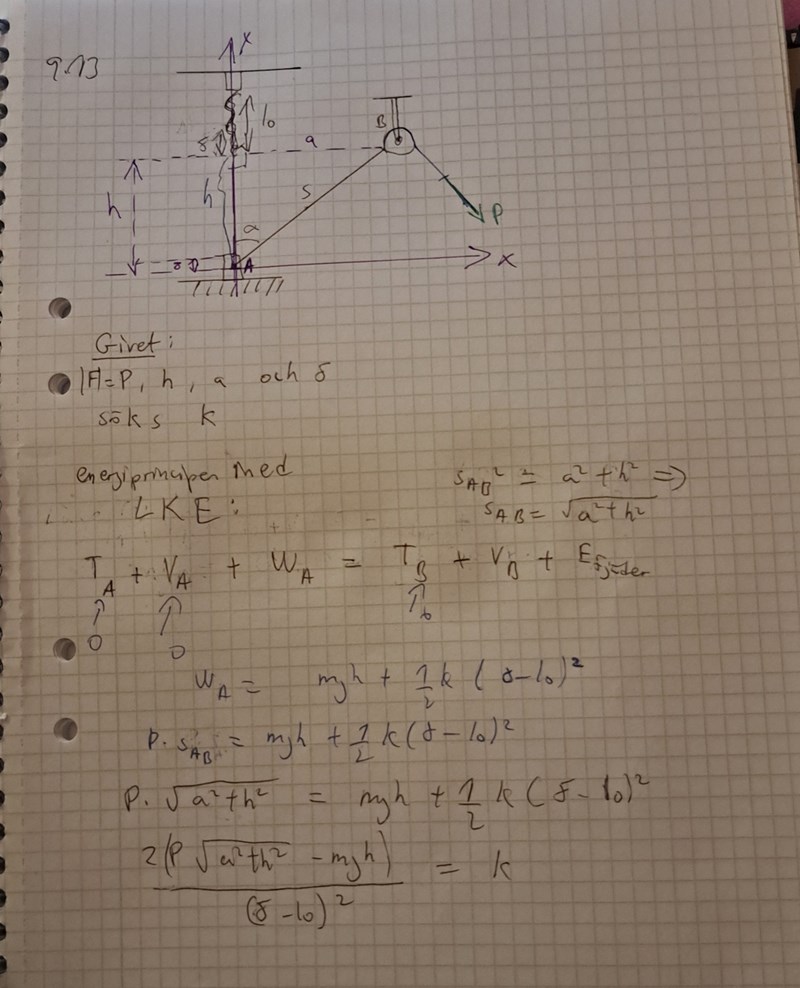 9.13
x
l₀
δ
a
B
h
h
s
P
α
δ
A
x
Givet:
|F|=P, h, a och δ
söks k
energiprincipen med
LKE:
s_AB² = a² + h² ⇒
s_AB = √(a²+h²)
T_A + V_A + W_A = T_B + V_B + E_fjäder
0
0
0
W_A = mgh + 1/2 k (δ-l₀)²
P · s_AB = mgh + 1/2 k (δ - l₀)²
P · √(a²+h²) = mgh + 1/2 k (δ - l₀)²
2(P √(a²+h²) - mgh) / (δ - l₀)² = k